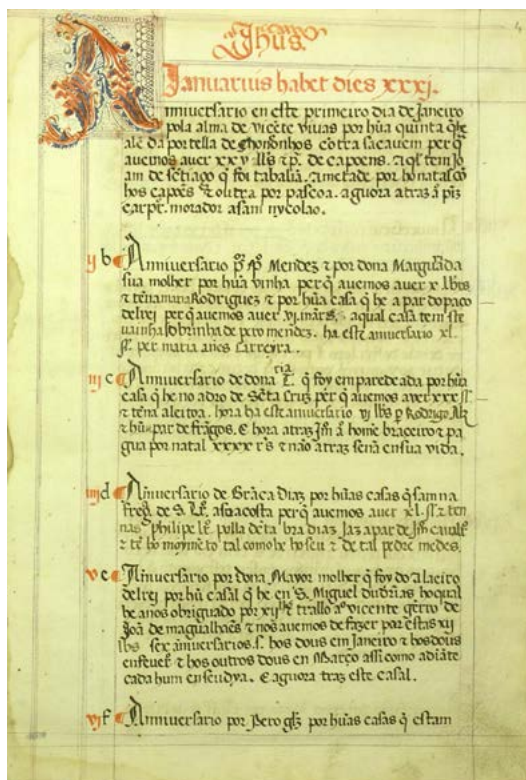 Jhũs.
Januarius habet dies xxxj.
A Anniversario en este primeiro dia de Janeiro
pola alma de vicẽte vivas por hũa quinta q̃ he
alẽ da portella de chononhos cõtra sacavem per q̃
avemos aver xxv lbs de capoens. a ql tem Jo
am de sẽtiago q̃ foi tabaliã. a metade por ho natal cõ
hos capoẽs & outra por pascoa. aguora atraz
carpr̃. morador a sam nycolao.
ij b Anniversario Mendez & por dona Margarida
sua molher por hũa vinha per q̃ avemos aver x lbrs
& tẽna maria Rodriguez & por hũa casa q̃ he a par do paço
delrej per q̃ avemos aver vj. mãrs. a qual casa tem ste
vainha sobrinha de pero mendez. ha este aniversario xl.
ss. per maria años carreyra.
iij c Anniversario de dona ria q̃ foy emparedeada por hũa
casa q̃ he no adro de Sc̃ta Cruz per q̃ avemos aver xxx ss.
& tẽna aleitoa. hora ha este aniversario vj lbs Rodrigo
& hũ par de frãgos. E hora atraz Jm̃ home braceiro & pa
gua por natal xxxx r̃s & não atraz senã en sua vida.
iiij d Aniversario de Grãca Diaz por hũas casas q̃ sam na
freg. de S. a sua costa per q̃ avemos aver xl. ss. & ten
nas philipe polla dc̃ta bra diaz Jaz a par de Jm̃
& tẽ bo moymẽto tal como he ho seu & de tal pedre mẽdes.
v e Aniversario por dona Mayor molher q̃ foy do alaeiro
delrej por hũ casal q̃ he en S. Miguel ho qual
he años obriguado por xij lbs vicente de
Joã de magualhaẽs & nos avemos de fazer por estas xij
lbs sex aniversarios. s. hos dous em Janeiro & hos dous
en fever & hos outros dous en Março assi como adiãte
cada hum en seu dya. E aguora traz este casal.
vj f Anniversario por Pero glz por hũas casas q̃ estam